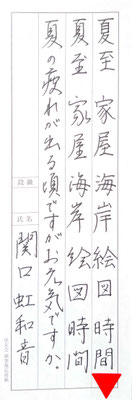 夏至 家屋 海岸 絵図 時間
夏至 家屋 海岸 絵図 時間
夏の疲れが出る頃ですがお元気ですか。
段級
氏名 関口虹和音